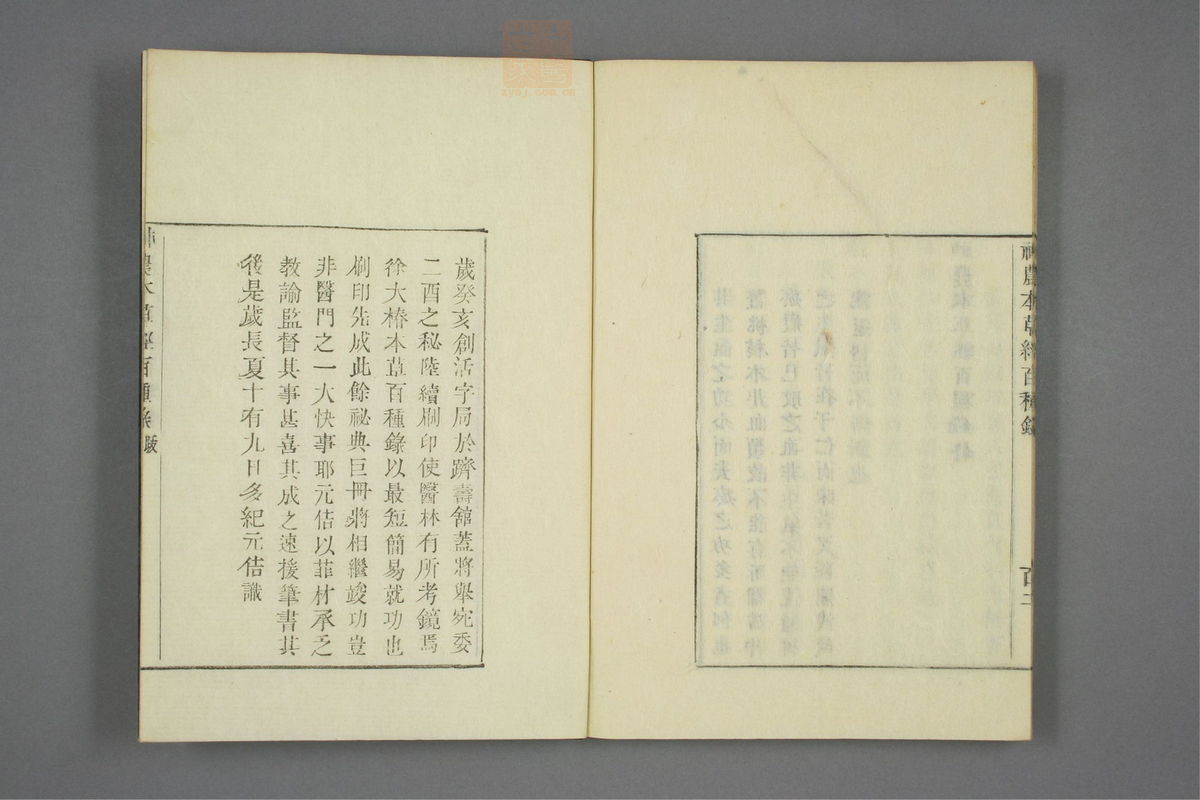 神農本草經百種錄
百二
歲癸亥創活字局於躋壽舘蓋將舉宛委
二酉之秘陸續刷印使醫林有所考鏡焉
徐大椿本草百種錄以最短簡易就功也
刷印先成此餘祕典巨冊將相繼竣功豈
非醫門之一大快事耶元佶以菲材承乏
教諭監督其事甚喜其成之速援筆書其
後是歲長夏十有九日多紀元佶識
神農本草經百種錄跋
zybj.com.cn